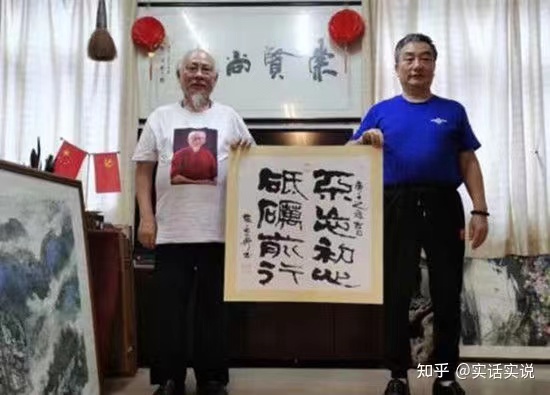 賢尚
不忘初心
砥礪前行
知乎 @实话实说